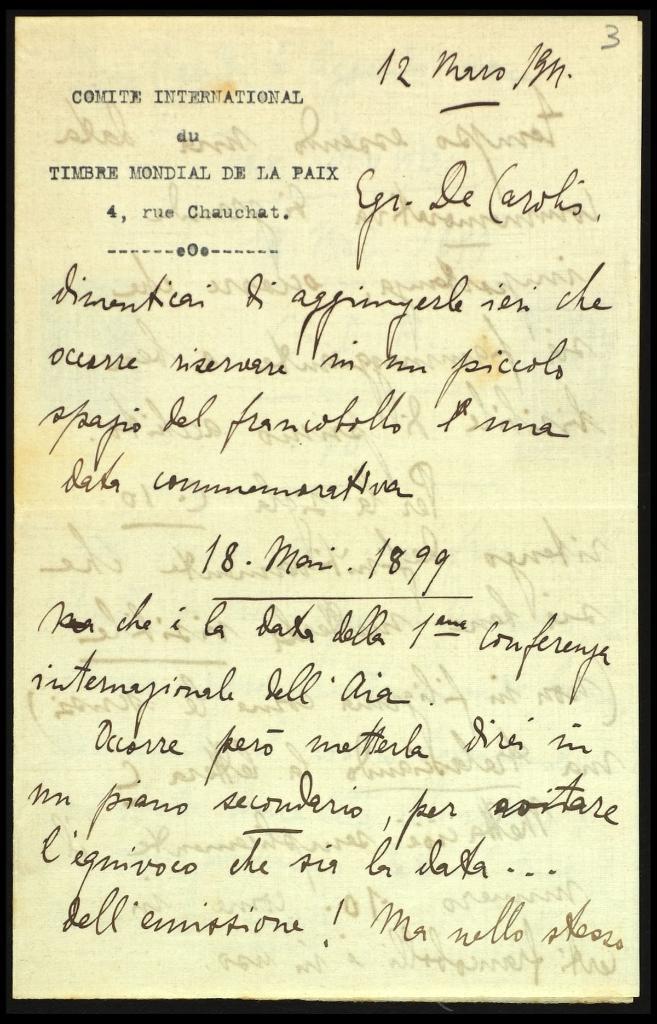 3
12 Marzo 1911.
COMITE INTERNATIONAL
du
TIMBRE MONDIAL DE LA PAIX
4, rue Chauchat.
------oOo------
Egr. De Carolis,
dimenticai di aggiungerle ieri che
occorre riservare in un piccolo
spazio del francobollo una
data commemorativa
18. Mai. 1899
che è la data della 1ème conferenza
internazionale dell'Aia.
Occorre però metterla direi in
un piano secondario, per evitare
l'equivoco che sia la data...
dell'emissione! Ma nello stesso